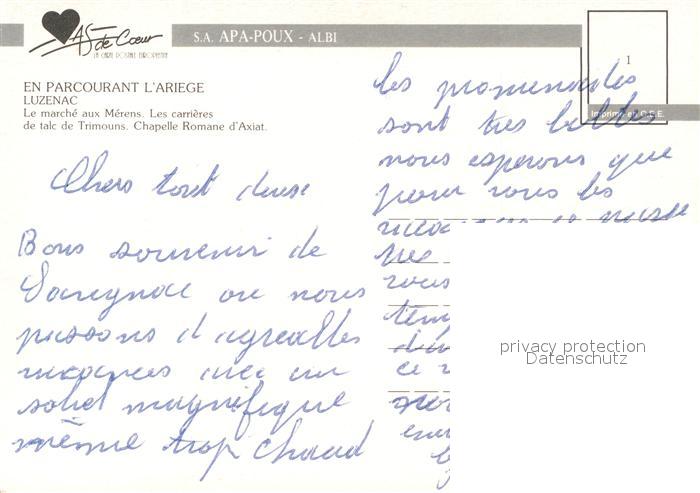 AS de Cœur
LA CARTE POSTALE EUROPEENNE
S.A. APA-POUX - ALBI
EN PARCOURANT L'ARIEGE
LUZENAC
Le marché aux Mérens. Les carrières
de talc de Trimouns. Chapelle Romane d'Axiat.
1
Imprimé en C.E.E.
Chers tout deuse
Bons souvenir de
ou nous
passons d agreables
vacances avec un
soleil magnifique
même trop chaud
les promenades
sont tres belles
nous esperons que
pour vous les
vaca
vous
tem
ce
privacy protection
Datenschutz